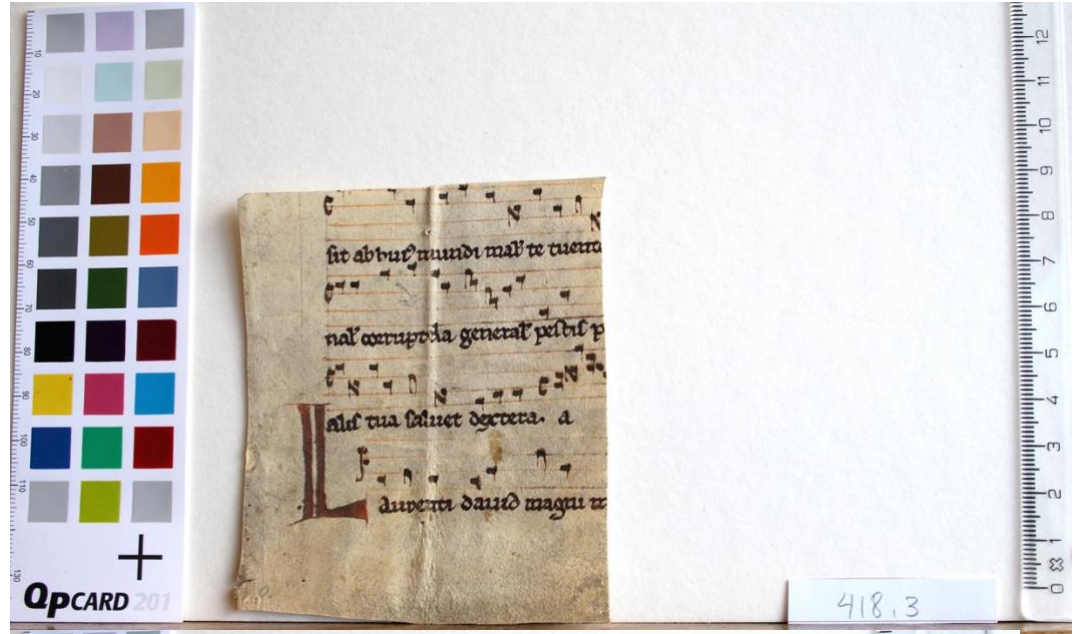 sit ab huiꝰ mundi mal' te tuente
nal' corruptela general' pestis p
alis tua saluet dextera. a
Laurenti dauid magni m
QPCARD 201
418.3
10
20
30
40
50
60
70
80
90
100
110
130
12
11
10
9
8
7
6
5
4
3
2
1
0